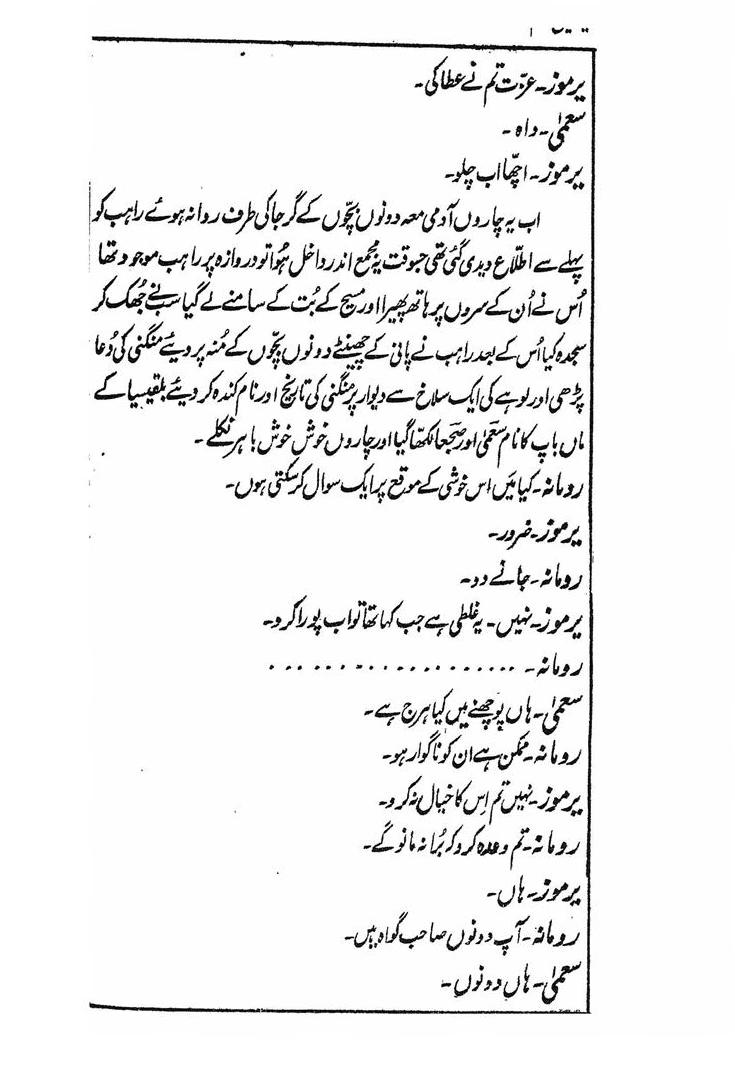 یرموز۔ عزّت تم نے عطا کی۔
سعمیٰ۔ داہ۔
یرموز۔ اچّھا اب چلو۔
اب یہ چاروں آدمی معہ دونوں بچّوں کے گرجا کی طرف روانہ ہوئے راہب کو
پہلے سے اطلّاع دیدی گئی تھی جسوقت یہ مجمع اندر داخل ہُوا تو دروازہ پر راہب موجود تھا
اُس نے اُن کے سروں پر ہاتھ پھیرا اور مسیح کے بُت کے سامنے لے گیا سب نے جُھک کر
سجدہ کیا اُس کے بعد راہب نے پانی کے چھینٹے دونوں بچّوں کے مُنہ پر دیئے منگنی کی دُعا
پڑھی اور لوہے کی ایک سلاخ سے دیوار پر منگنی کی تاریخ اور نام کندہ کر دیئے بلقیسیا کے
ماں باپ کا نام سعمیٰ اور ضجعا لکھّا گیا اور چاروں خوش خوش باہر نکلے۔
رومانہ۔ کیا میَں اس خوشی کے موقع پر ایک سوال کر سکتی ہوں۔
یرموز۔ ضرور۔
رومانہ۔ جانے دو۔
یرموز۔ نہیں۔ یہ غلطی ہے جب کہا تھا تو اب پورا کرو۔
رومانہ۔ ....................
سعمیٰ۔ ہاں پوچھنے میں کیا ہرج ہے۔
رومانہ۔ ممکن ہے ان کو ناگوار ہو۔
یرموز۔ نہیں تم اِس کا خیال نہ کرو۔
رومانہ۔ تم وعدہ کرو کہ بُرا نہ مانو گے۔
یرموز۔ ہاں۔
رومانہ۔ آپ دونوں صاحب گواہ ہیں۔
سعمیٰ۔ ہاں دونوں۔